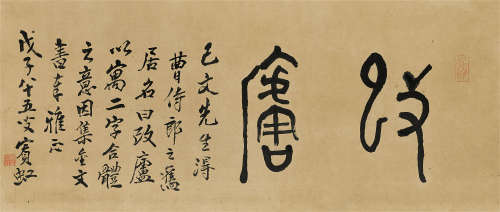 改廬
己文先生得
曹侍郎之舊
居名曰改廬
以寓二字合體
之意因集金文
書奉雅正
戊子八十五叟賓虹